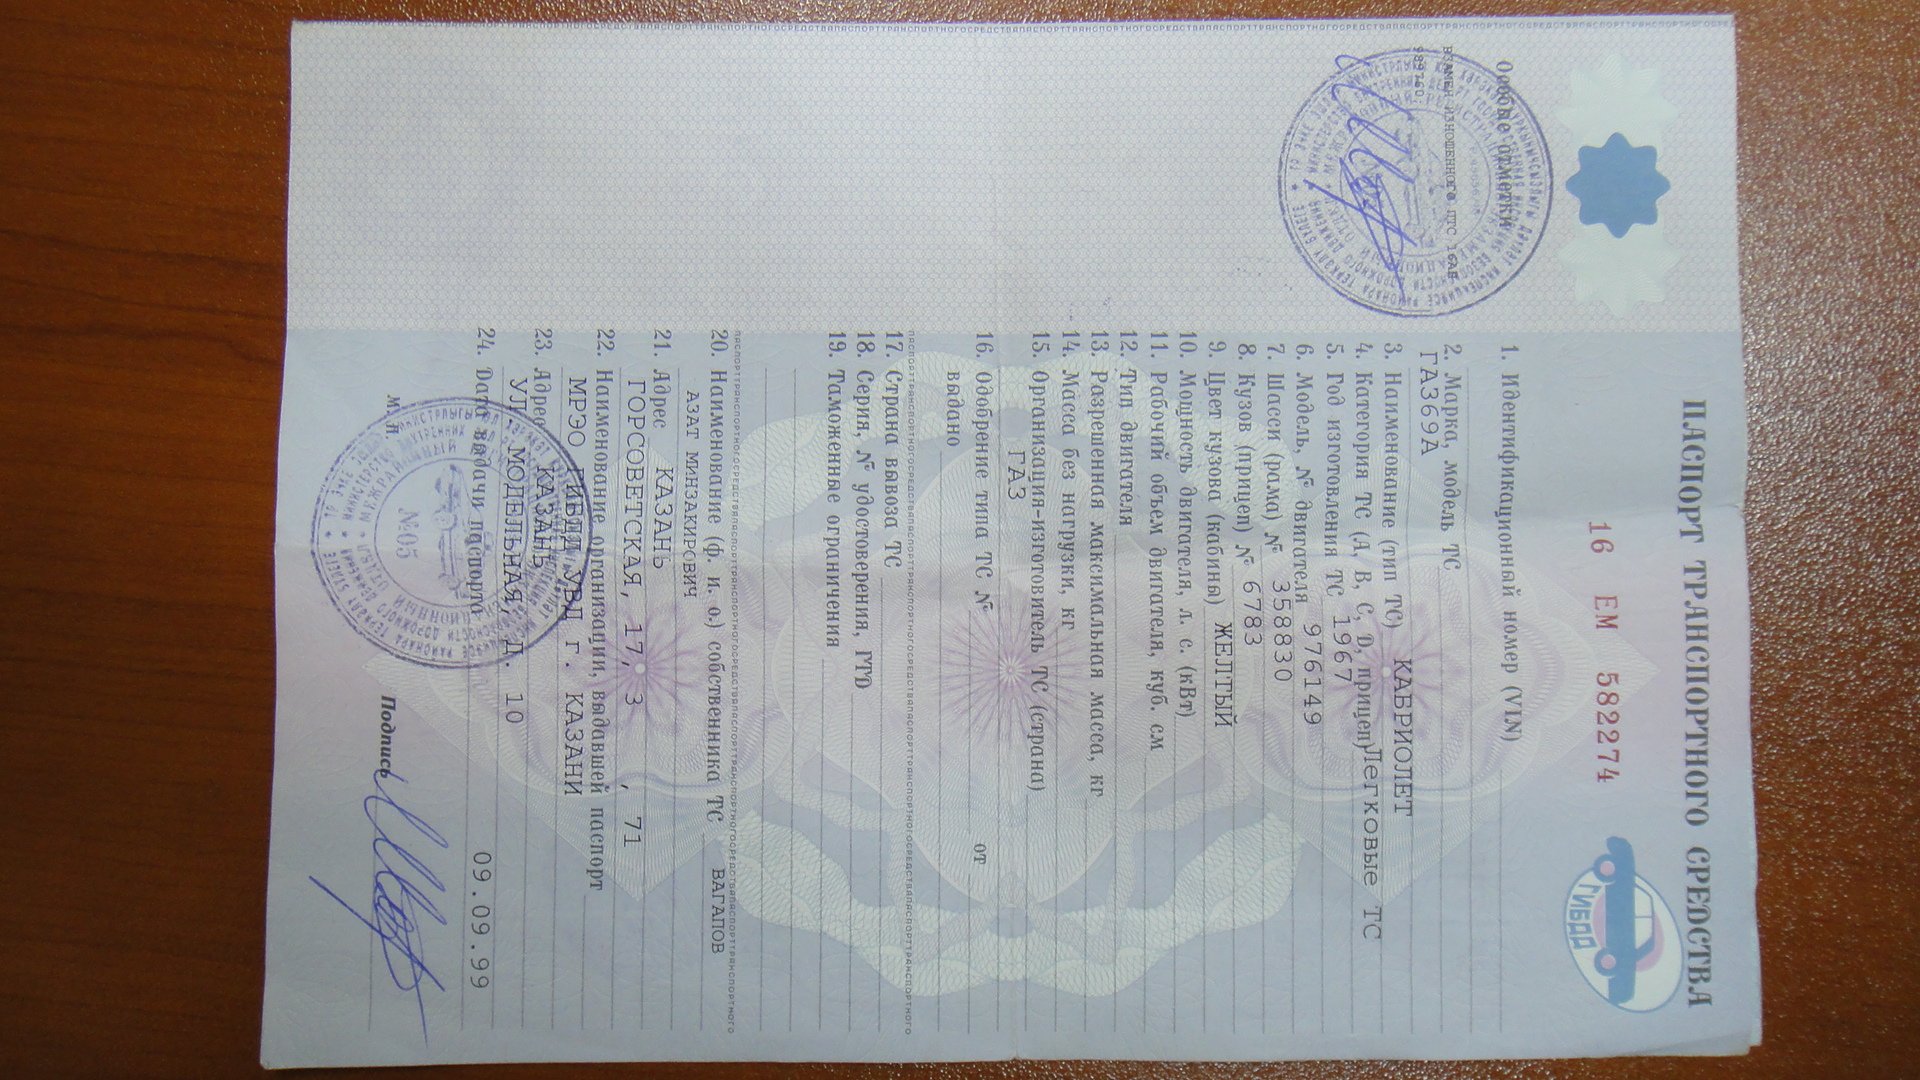 ПАСПОРТ ТРАНСПОРТНОГО СРЕДСТВА
16 ЕМ 582274
ГИБДД
Особые отметки
ВЗАМЕН ИЗНОШЕННОГО ПТС 16АЕ
989760;
1. Идентификационный номер (VIN)
2. Марка, модель ТС
ГАЗ69А
3. Наименование (тип ТС) КАБРИОЛЕТ
4. Категория ТС (A, B, C, D, прицеп) Легковые ТС
5. Год изготовления ТС 1967
6. Модель, № двигателя 976149
7. Шасси (рама) № 358830
8. Кузов (прицеп) № 6783
9. Цвет кузова (кабины) ЖЕЛТЫЙ
10. Мощность двигателя, л. с. (кВт)
11. Рабочий объем двигателя, куб. см
12. Тип двигателя
13. Разрешенная максимальная масса, кг
14. Масса без нагрузки, кг
15. Организация-изготовитель ТС (страна)
ГАЗ
16. Одобрение типа ТС № от
выдано
17. Страна вывоза ТС
18. Серия, № удостоверения, ГТД
19. Таможенные ограничения
20. Наименование (ф. и. о.) собственника ТС ВАГАПОВ
АЗАТ МИНЗАКИРОВИЧ
21. Адрес КАЗАНЬ
ГОРСОВЕТСКАЯ, 17, 3 , 71
22. Наименование организации, выдавшей паспорт
МРЭО ГИБДД УВД г. КАЗАНИ
23. Адрес КАЗАНЬ
УЛ. МОДЕЛЬНАЯ, Д. 10
24. Дата выдачи паспорта 09.09.99
М. П.
№05
Подпись